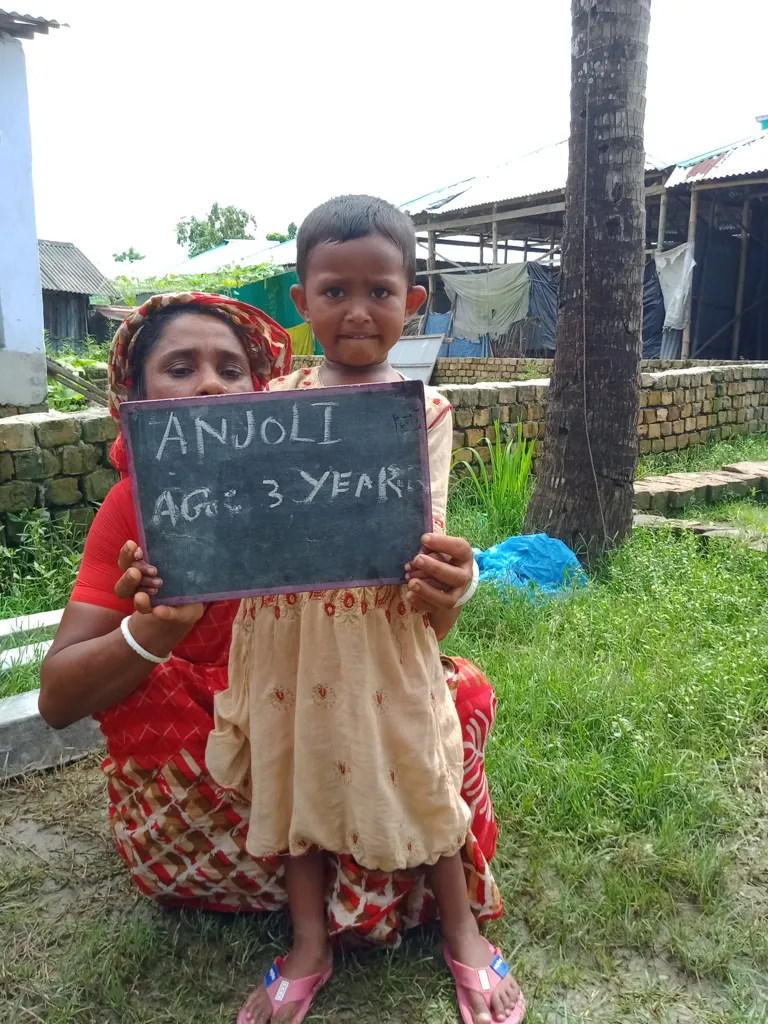 ANJOLI
AGE: 3 YEAR